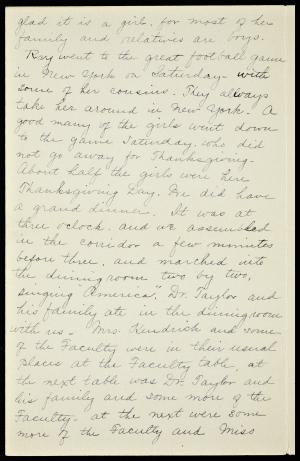 glad it is a girl, for most of her
family and relatives are boys.
Ray went to the great football game
in New York on Saturday with
some of her cousins. They always
take her around in New York. A
good many of the girls went down
to the game Saturday, who did
not go away for Thanksgiving.
About half the girls were here
Thanksgiving Day. We did have
a grand dinner. It was at
three o'clock, and we assembled
in the corridor a few minutes
before three, and marched into
the diningroom two by two,
singing "America". Dr. Taylor and
his family ate in the diningroom
with us. Mrs. Kendrick and some
of the Faculty were in their usual
places at the Faculty table, at
the next table was Dr. Taylor and
his family and some more of the
Faculty. at the next were some
more of the Faculty and Miss